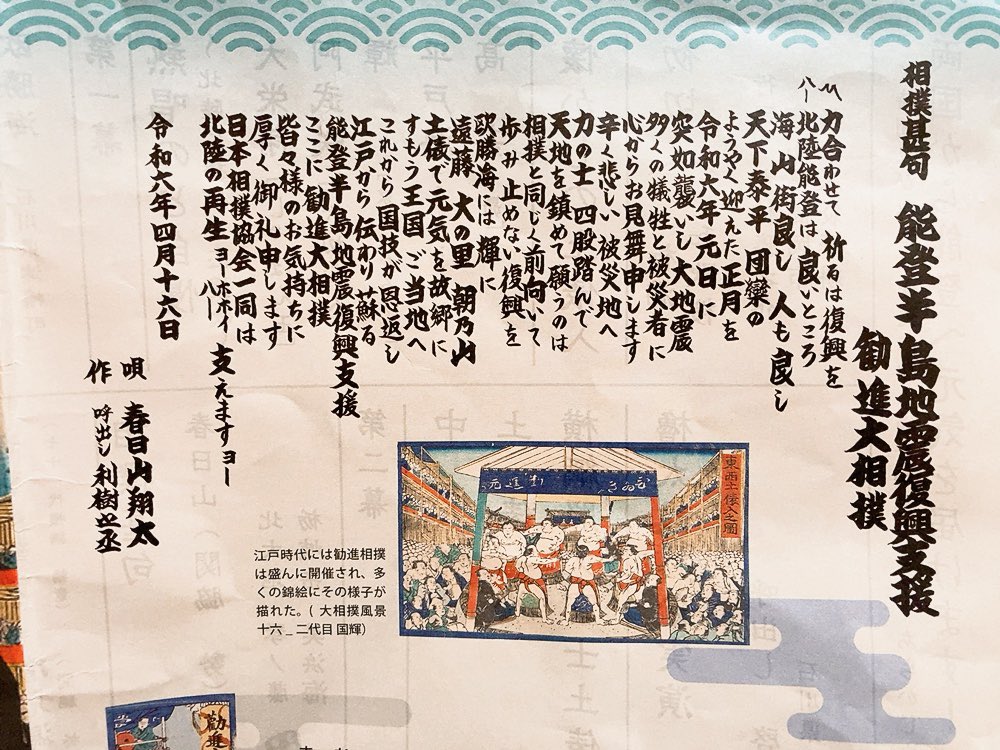 相撲甚句 能登半島地震復興支援
勧進大相撲
力合わせて 祈るは復興を
ハー北陸能登は 良いところ
海 山 街良し 人も良し
天下泰平 団欒の
ようやく迎えた正月を
令和六年 元日に
突如襲いし大地震
多くの犠牲と被災者に
心からお見舞申します
辛く悲しい 被災地へ
力の士 四股踏んで
天地を鎮めて願うのは
相撲と同じく前向いて
歩み止めない復興を
欧勝海には 輝に
遠藤 大の里 朝乃山
土俵で元気を故郷に
すもう王国 ご当地へ
これから国技が恩返し
江戸から伝わり 蘇る
能登半島地震復興支援
ここに 勧進大相撲
皆々様のお気持ちに
厚く御礼申します
日本相撲協会一同は
北陸の再生 ョーホホイ ハー 支えますョー
令和六年四月十六日
唄 春日山翔太
作 呼出し利樹之丞
東西土俵入之圖
江戸時代には勧進相撲
は盛んに開催され、多
くの錦絵にその様子が
描れた。( 大相撲風景
十六 _ 二代目 国輝)
勧進